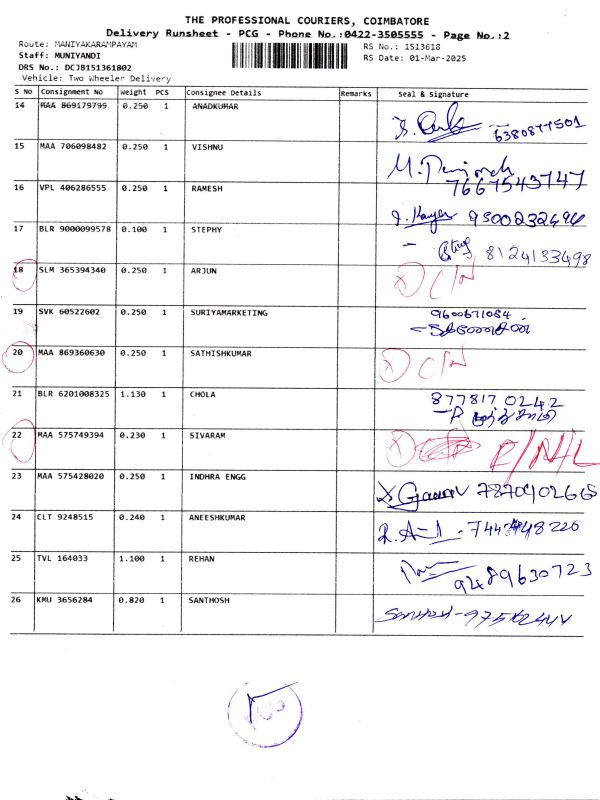 THE PROFESSIONAL COURIERS, COIMBATORE
Delivery Runsheet - PCG - Phone No.:0422-3505555 - Page No.:2
Route: MANIYAKARAMPAYAM
RS No.: 1513618
Staff: MUNIYANDI
RS Date: 01-Mar-2025
DRS No.: DCJB151361802
Vehicle: Two Wheeler Delivery
S No Consignment No Weight PCS Consignee Details Remarks Seal & Signature
14 MAA 869179799 0.250 1 ANADKUMAR
6380877501
15 MAA 706098482 0.250 1 VISHNU
7667543747
16 VPL 406286555 0.250 1 RAMESH
17 BLR 9000099578 0.100 1 STEPHY
8124133498
18 SLM 365394340 0.250 1 ARJUN C/N
19 SVK 60522602 0.250 1 SURIYAMARKETING 9600671084
20 MAA 869360630 0.250 1 SATHISHKUMAR C/N
21 BLR 6201008325 1.130 1 CHOLA 877817 0242
22 MAA 575749394 0.230 1 SIVARAM
23 MAA 575428020 0.250 1 INDHRA ENGG
24 CLT 9248515 0.240 1 ANEESHKUMAR
25 TVL 164033 1.100 1 REHAN
9489630723
26 KMU 3656284 0.820 1 SANTHOSH